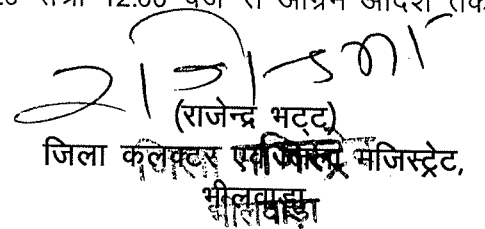 12.00 बजे से अग्रिम आदेश तक
(राजेन्द्र भट्ट)
जिला कलेक्टर एवं जिला मजिस्ट्रेट,
भीलवाड़ा